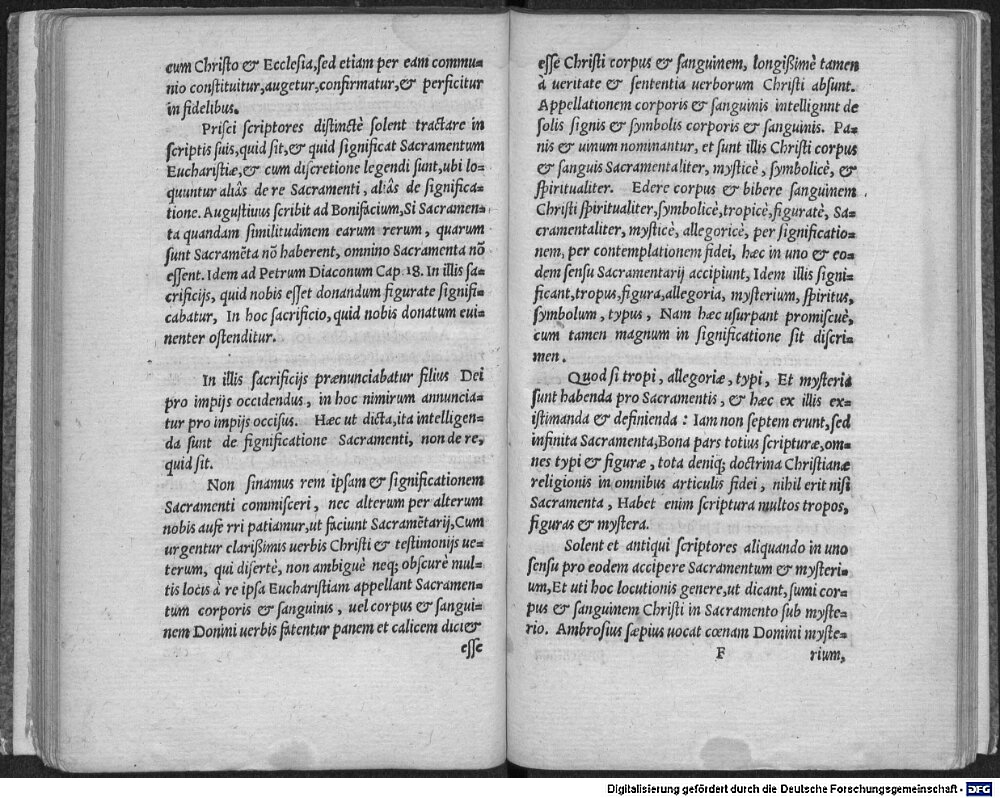 cum Christo & Ecclesia, sed etiam per eam commu-
nio constituitur, augetur, confirmatur, & perficitur
in fidelibus.
Prisci scriptores distinctè solent tractare in
scriptis suis, quid sit, & quid significat Sacramentum
Eucharistiæ, & cum discretione legendi sunt, ubi lo-
quuntur aliâs de re Sacramenti, aliâs de significa-
tione. Augustinus scribit ad Bonifacium, Si Sacramen-
ta quandam similitudinem earum rerum, quarum
sunt Sacramẽta nõ haberent, omnino Sacramenta nõ
essent. Idem ad Petrum Diaconum Cap. 18. In illis sa-
crificijs, quid nobis esset donandum figurate signifi-
cabatur, In hoc sacrificio, quid nobis donatum eui-
nenter ostenditur.
In illis sacrificijs prænunciabatur filius Dei
pro impijs occidendus, in hoc nimirum annuncia-
tur pro impijs occisus. Hæc ut dicta, ita intelligen-
da sunt de significatione Sacramenti, non de re,
quid sit.
Non sinamus rem ipsam & significationem
Sacramenti commisceri, nec alterum per alterum
nobis aufe rri patiamur, ut faciunt Sacramẽtarij, Cum
urgentur clarissimis uerbis Christi & testimonijs ue-
terum, qui disertè, non ambiguè neq; obscurè mul-
tis locis à re ipsa Eucharistiam appellant Sacramen-
tum corporis & sanguinis, uel corpus & sangui-
nem Domini uerbis fatentur panem et calicem dici &
esse
esse Christi corpus & sanguinem, longissimè tamen
à ueritate & sententia uerborum Christi absunt.
Appellationem corporis & sanguinis intellignnt de
solis signis & symbolis corporis & sanguinis. Pa-
nis & uinum nominantur, et sunt illis Christi corpus
& sanguis Sacramentaliter, mysticè, symbolicè, &
spiritualiter. Edere corpus & bibere sanguinem
Christi spiritualiter, symbolicè, tropicè, figuratè, Sa-
cramentaliter, mysticè, allegoricè, per significatio-
nem, per contemplationem fidei, hæc in uno & eo-
dem sensu Sacramentarij accipiunt, Idem illis signi-
ficant, tropus, figura, allegoria, mysterium, spiritus,
symbolum, typus, Nam hæc usurpant promiscuè,
cum tamen magnum in significatione sit discri-
men.
Quod si tropi, allegoriæ, typi, Et mysteria
sunt habenda pro Sacramentis, & hæc ex illis ex-
istimanda & definienda: Iam non septem erunt, sed
infinita Sacramenta, Bona pars totius scripturæ, om-
nes typi & figuræ, tota deniq; doctrina Christianæ
religionis in omnibus articulis fidei, nihil erit nisi
Sacramenta, Habet enim scriptura multos tropos,
figuras & mystera.
Solent et antiqui scriptores aliquando in uno
sensu pro eodem accipere Sacramentum & mysteri-
um, Et uti hoc locutionis genere, ut dicant, sumi cor-
pus & sanguinem Christi in Sacramento sub myste-
rio. Ambrosius sæpius uocat cœnam Domini myste-
F rium,
Digitalisierung gefördert durch die Deutsche Forschungsgemeinschaft - DFG